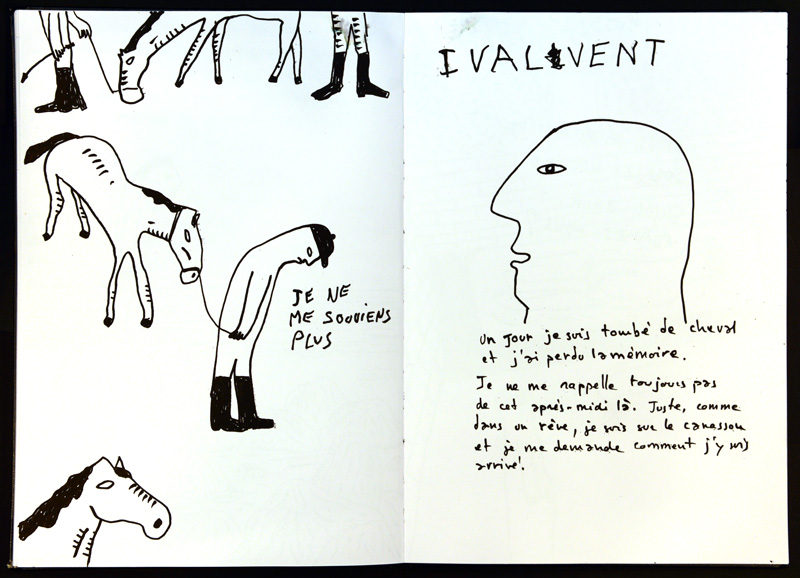 JE NE
ME SOUVIENS
PLUS
IVALVENT
un jour je suis tombé de cheval
et j'ai perdu la mémoire.
Je ne me rappelle toujours pas
de cet après-midi là. Juste, comme
dans un rêve, je suis sur le canasson
et je me demande comment j'y suis
arrivé.